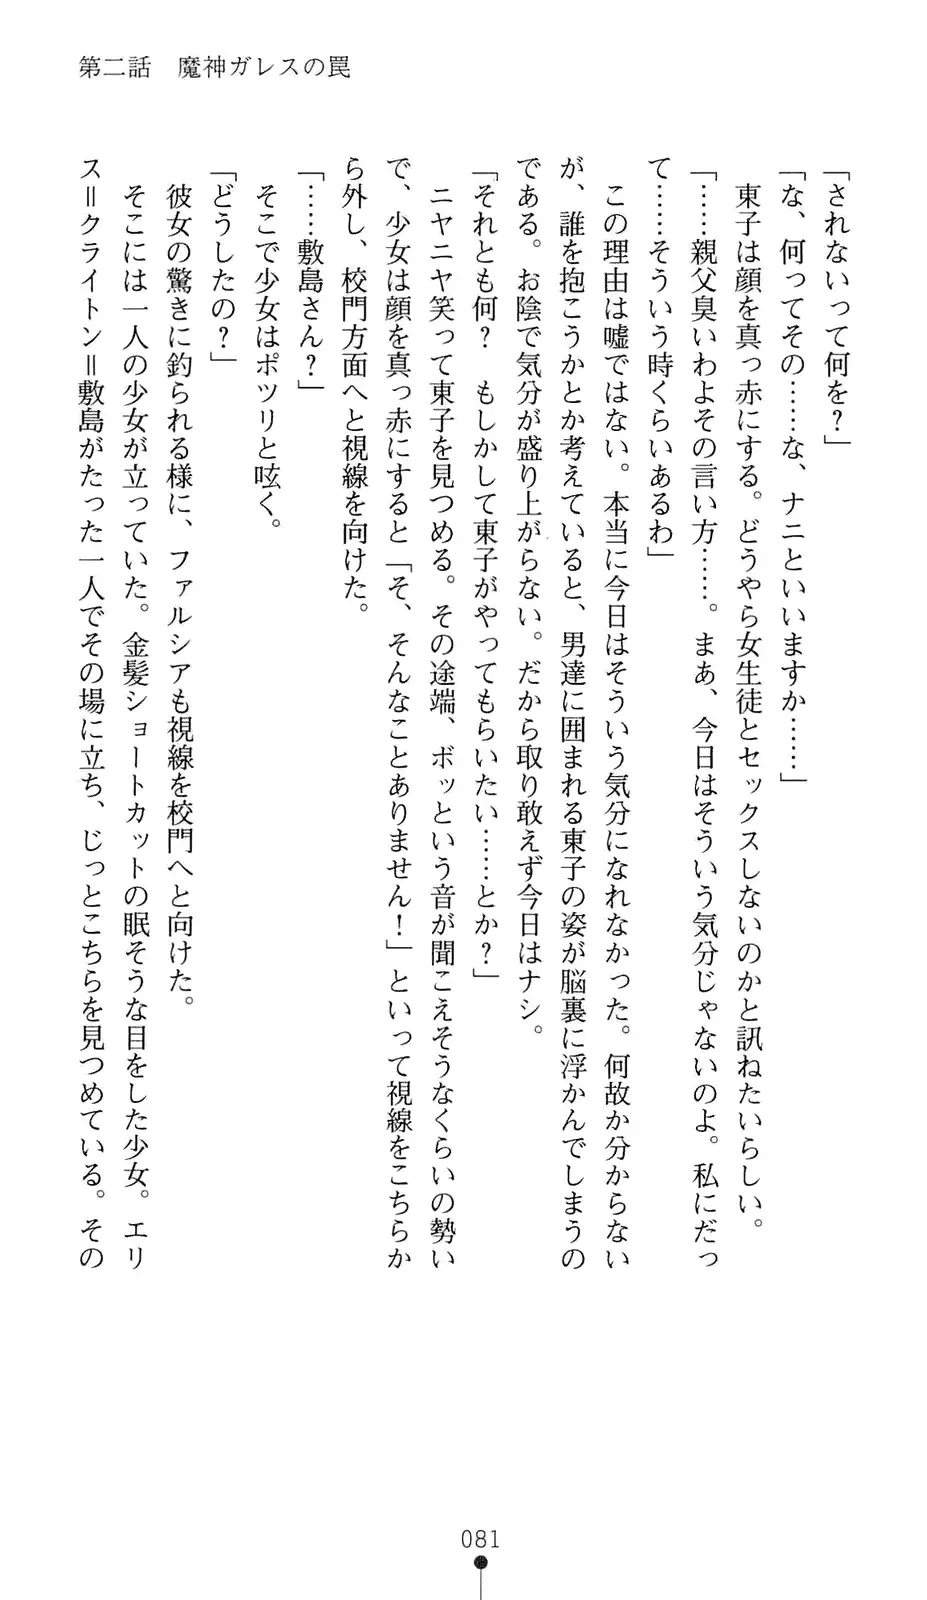 第二話　魔神ガレスの罠
「されないって何を？」
「な、何ってその……な、ナニといいますか……」
　東子は顔を真っ赤にする。どうやら女生徒とセックスしないのかと訊ねたいらしい。
「……親父臭いわよその言い方……。まあ、今日はそういう気分じゃないのよ。私にだっ
て……そういう時くらいあるわ」
　この理由は嘘ではない。本当に今日はそういう気分になれなかった。何故か分からない
が、誰を抱こうかとか考えていると、男達に囲まれる東子の姿が脳裏に浮かんでしまうの
である。お陰で気分が盛り上がらない。だから取り敢えず今日はナシ。
「それとも何？　もしかして東子がやってもらいたい……とか？」
　ニヤニヤ笑って東子を見つめる。その途端、ボッという音が聞こえそうなくらいの勢い
で、少女は顔を真っ赤にすると「そ、そんなことありません！」といって視線をこちらか
ら外し、校門方面へと視線を向けた。
「……敷島さん？」
　そこで少女はポツリと呟く。
「どうしたの？」
　彼女の驚きに釣られる様に、ファルシアも視線を校門へと向けた。
　そこには一人の少女が立っていた。金髪ショートカットの眠そうな目をした少女。エリ
ス＝クライトン＝敷島がたった一人でその場に立ち、じっとこちらを見つめている。その
081